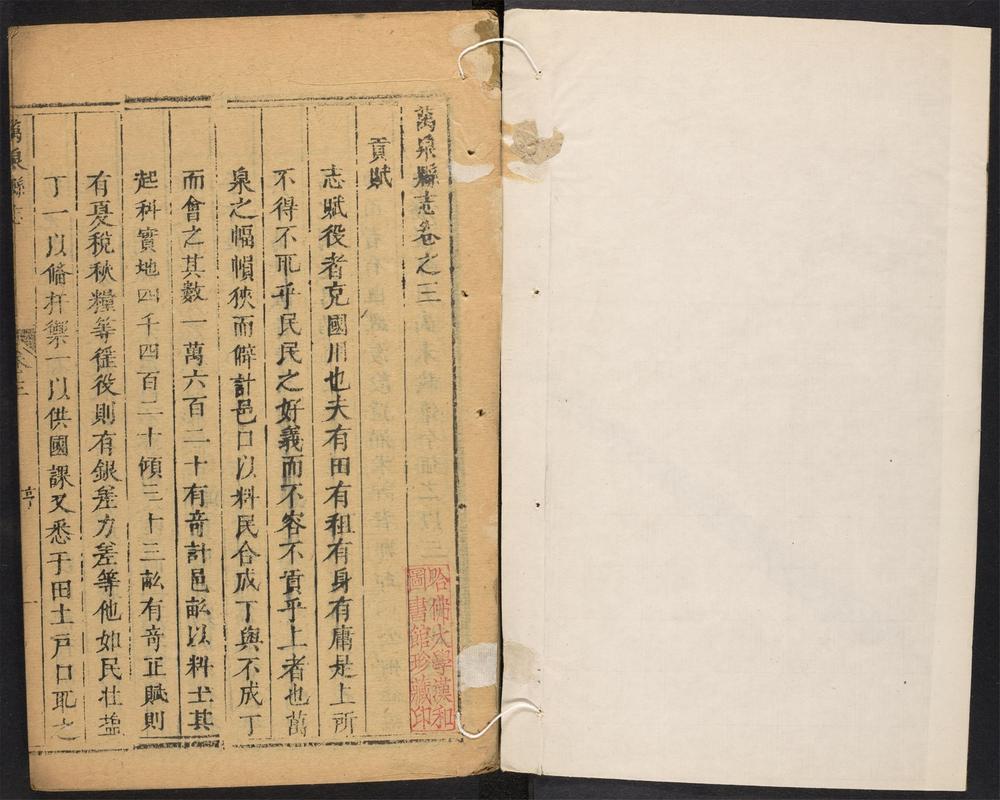 萬泉縣志卷之三
貢賦
志賦役者充國用也夫有田有租有身有庸是上所
不得不取乎民民之好義而不容不貢乎上者也萬
泉之幅幀狹而僻計邑口以料民合成丁與不成丁
而會之其數一萬六百二十有奇計邑畝以料土其
起科實地四千四百二十傾三十三畝有奇正賦則
有夏稅秋糧等徭役則有銀差力差等他如民壯鹽
丁一以脩扞禦一以供國課又悉于田土戸口取之
萬泉縣志
卷三
一
哈佛大學漢和
圖書館珍藏印